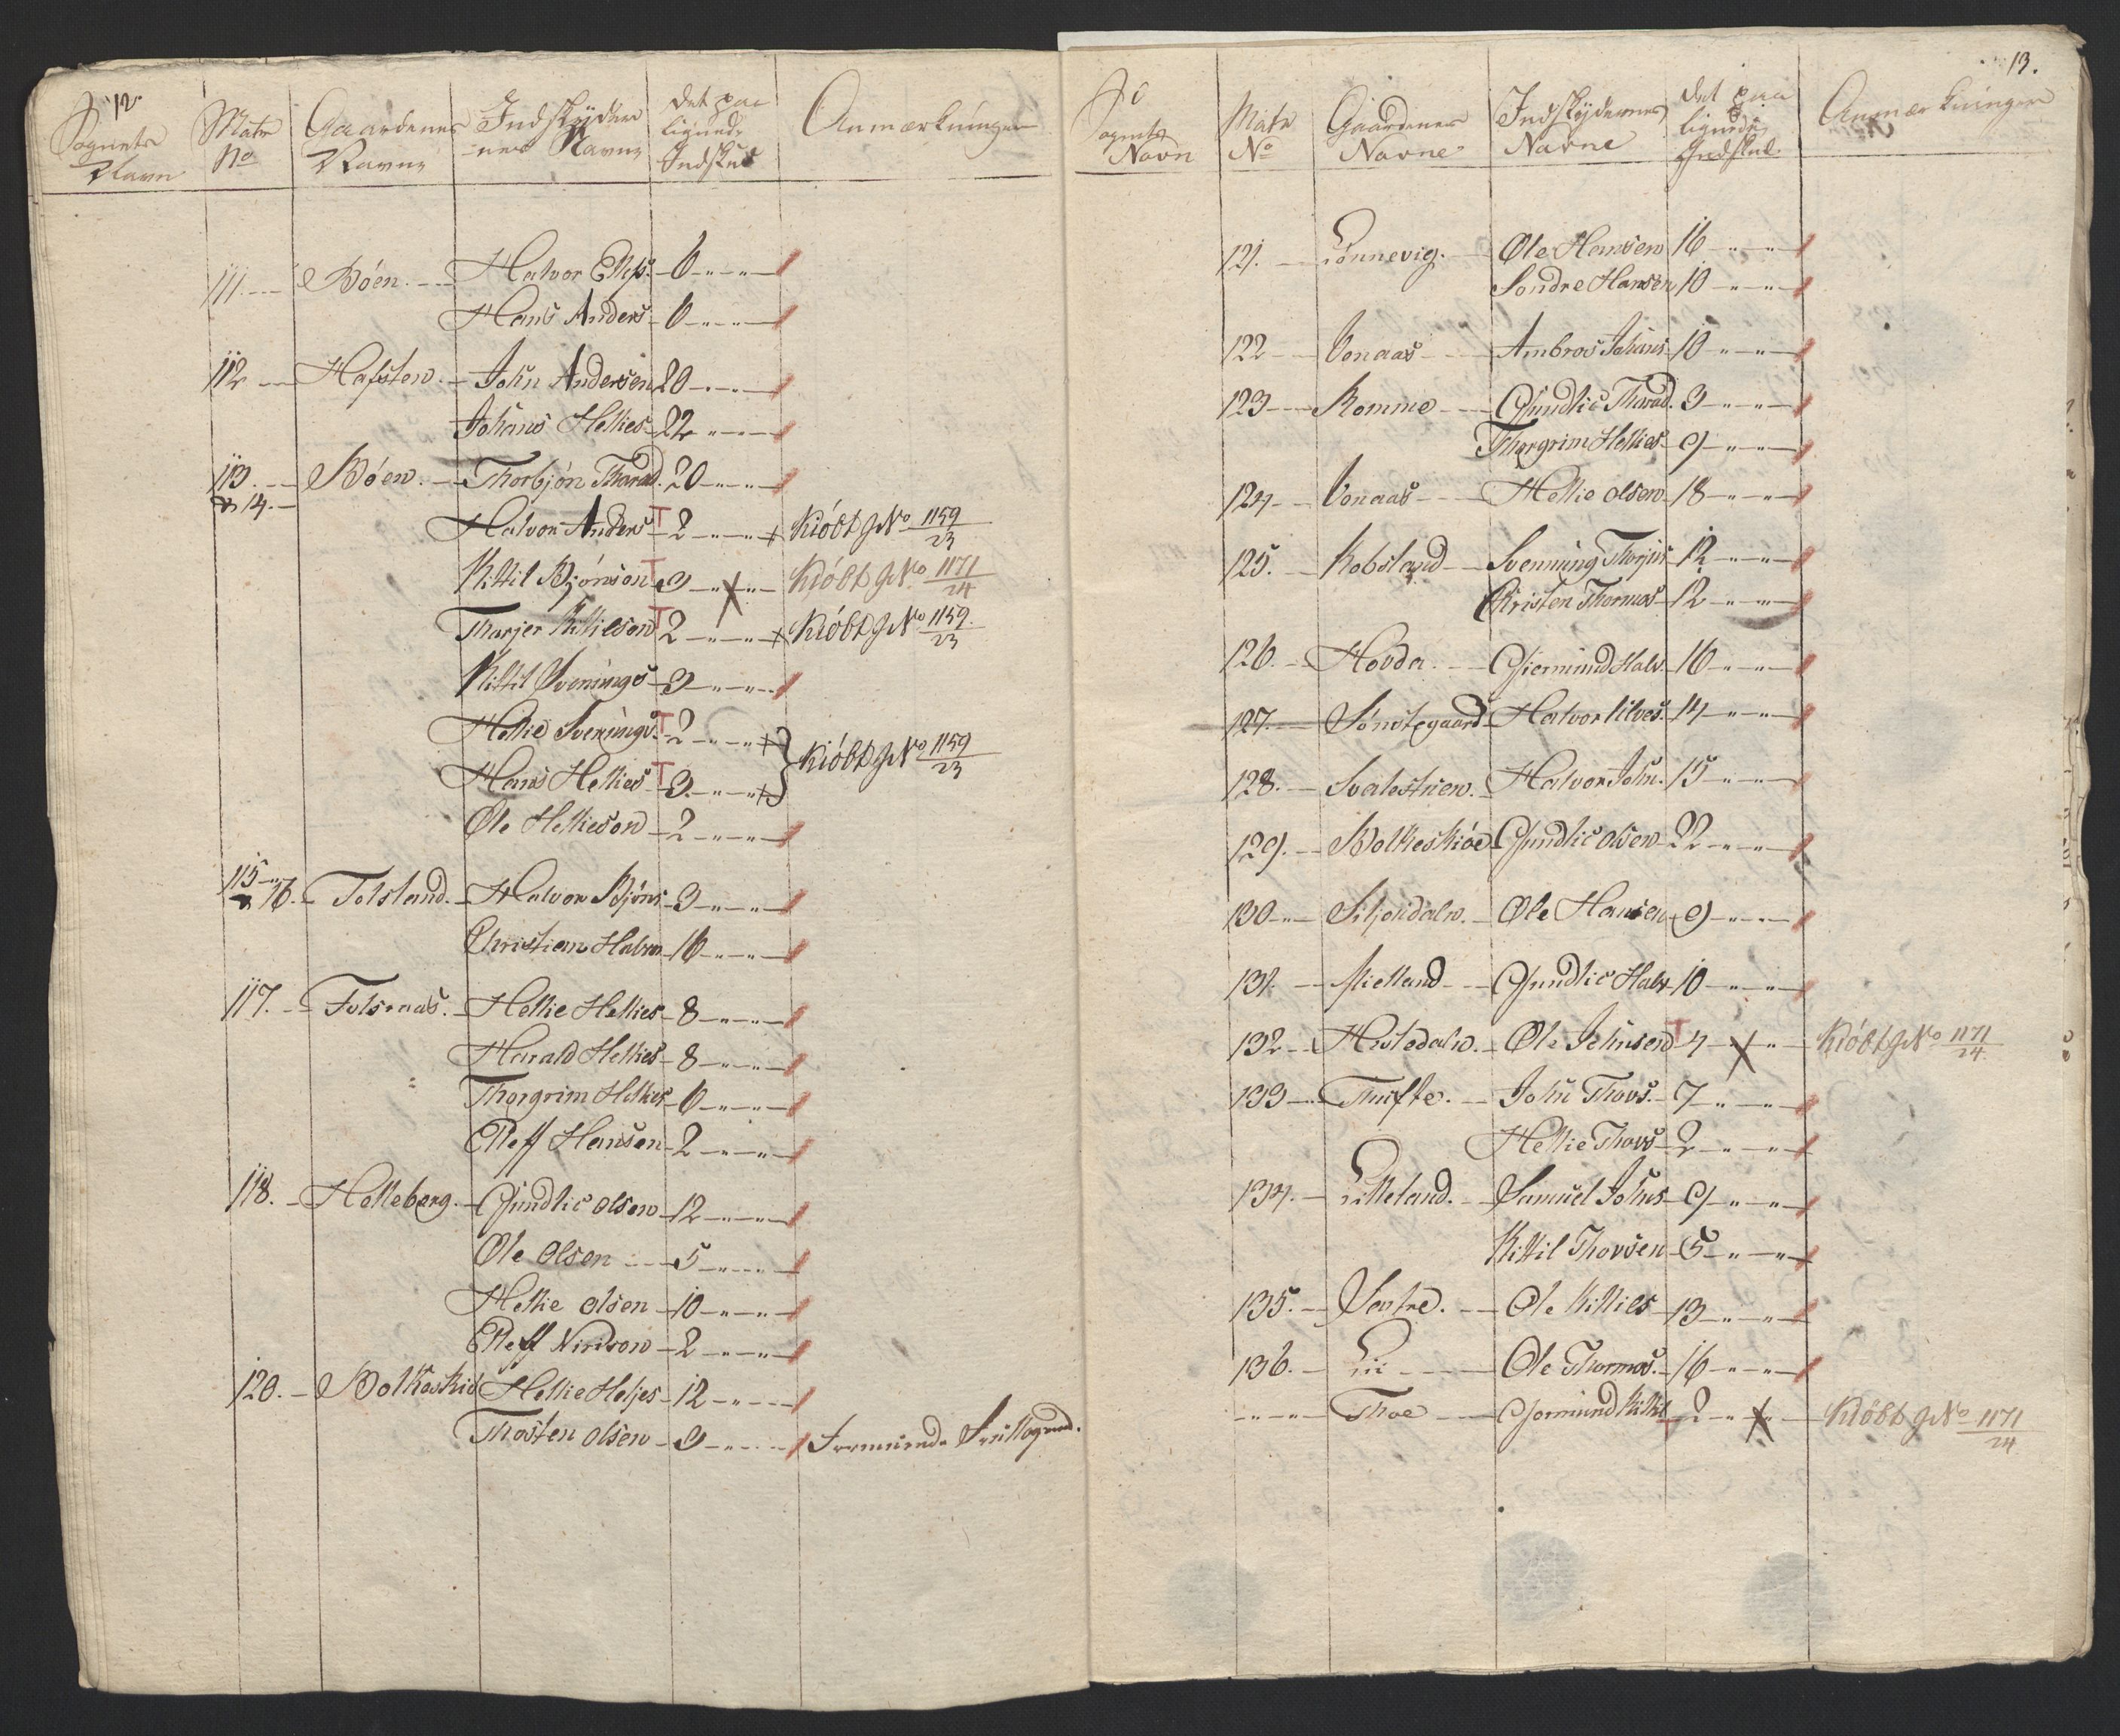 12.
Sognets Navn | Matr No | Gaardenes Navne | Indskyder nes Navne | Det paa lignede Indskud | Anmærkninger
111. Böen. Halvor Ellefs: 6
Hans Anders 6
112 Hafsten. John Andersen 20
Johans Hellies 22
113. & 14. Böen. Thorbjön Tharad. 20
Halvor Anders T 2 + Kiöbt J No 1159/23
Kittil Björnson T 3 X Kiöbt J No 1171/24
Tharjer Kittilson T 2 + Kiöbt J No 1159/23
Kittil Svenings 3
Hellie Svenings T 2 + } Kiöbt J No 1159/23
Hans Hellies T 3 +
Ole Hellieson 2
115 & 16. Folsland. Halvor Björns 3
Christian Halvor 16
117. Folseraas. Hellie Hellies 8
Harald Hellies 8
Thorgrim Hellies 6
Elleff Hansen 2
118. Helleberg. Gundlic Olsen 12
Ole Olsen 5
Hellie Olsen 10
Elleff Nirison 2
120. Bolkeskiö Hellie Heljes 12
Thosten Olsen 9
13.
Sognets Navn | Matr No | Gaardenes Navne | Indskydernes Navne | Det paa lignede Indskud | Anmærkninger
121. Lönnevig. Ole Hansen 16
Sondre Hansen 10
122 Vonaas Ambros Johans 10
123 Romme Gundlic Tharad. 3
Thorgrim Hellies 9
124 Vonaas Hellie Olsen 18
125. Kobsland Svenning Thorjus 12
Christen Thormos 12
126. Hovda. Giermund Halv. 16
127. Sönstegaard Halvor Lilves. 14
128. Svalestuen. Halvor John. 15
129. Bolkeskiöe Gundlic Olsen 22
130 Siljordalen. Ole Hansen 9
131. Mielland Gundlic Halv 10
132 Hestedalen. Ole Johnsen T 4 X Kiöbt J No 1171/24
133 Thufte. John Thovs. 7
Hellie Thovs 2
134. Lilleland. Samuel Johns 9
Kittil Thovsen 5
135. Sentre. Ole Kittils 13
136. Lii Ole Thormos. 16
Thoe Gormund Kittil 2 X Kiöbt J No 1171/24